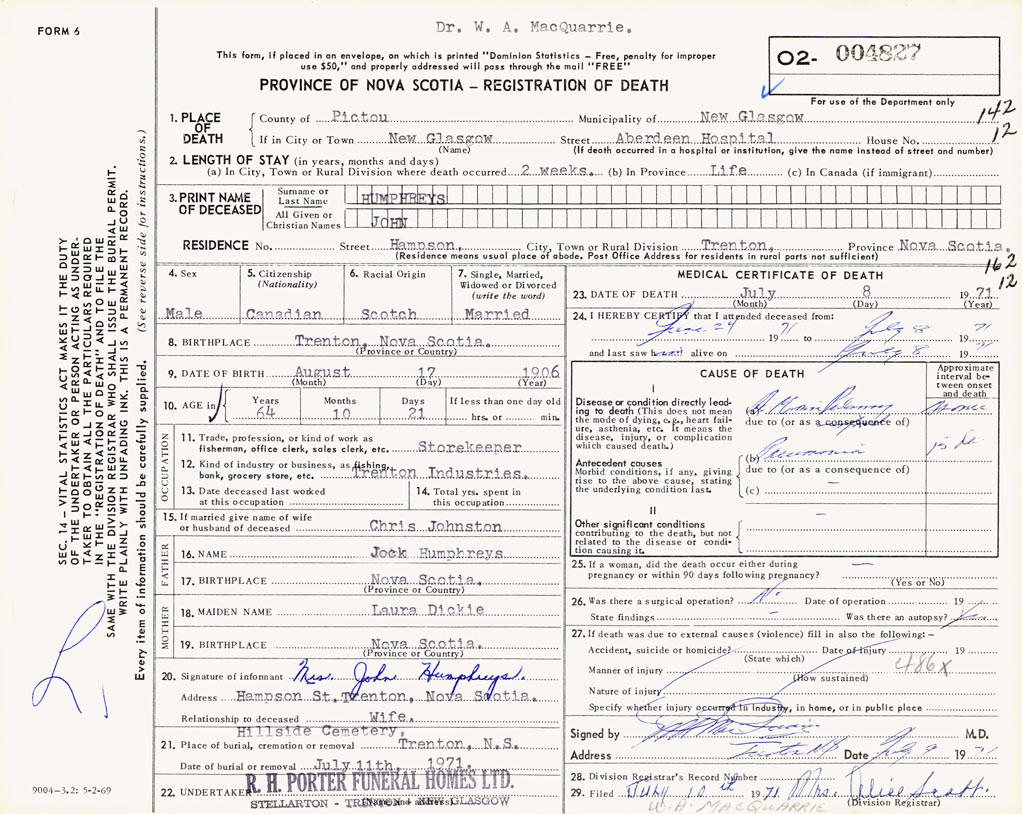 FORM 6
Dr. W. A. MacQuarrie.
This form, if placed in an envelope, on which is printed "Dominion Statistics – Free, penalty for improper
use $50," and properly addressed will pass through the mail "FREE"
PROVINCE OF NOVA SCOTIA – REGISTRATION OF DEATH
02- 004827
For use of the Department only
142
12
1. PLACE OF DEATH
County of Pictou Municipality of New Glasgow
If in City or Town New Glasgow Street Aberdeen Hospital House No.
(Name) (If death occurred in a hospital or institution, give the name instead of street and number)
2. LENGTH OF STAY (in years, months and days)
(a) In City, Town or Rural Division where death occurred 2 weeks. (b) In Province Life (c) In Canada (if immigrant)
3. PRINT NAME OF DECEASED
Surname or Last Name HUMPHREYS
All Given or Christian Names JOHN
RESIDENCE No. Street Hampson, City, Town or Rural Division Trenton, Province Nova Scotia.
(Residence means usual place of abode. Post Office Address for residents in rural parts not sufficient)
162
12
4. Sex
Male
5. Citizenship
(Nationality)
Canadian
6. Racial Origin
Scotch
7. Single, Married,
Widowed or Divorced
(write the word)
Married
8. BIRTHPLACE Trenton, Nova Scotia.
(Province or Country)
9. DATE OF BIRTH August 17 1906
(Month) (Day) (Year)
10. AGE in
Years Months Days If less than one day old
64 10 21 hrs. or min.
OCCUPATION
11. Trade, profession, or kind of work as
fisherman, office clerk, sales clerk, etc. Storekeeper
12. Kind of industry or business, as fishing,
bank, grocery store, etc. Trenton Industries.
13. Date deceased last worked
at this occupation
14. Total yrs. spent in
this occupation
15. If married give name of wife
or husband of deceased Chris Johnston
FATHER
16. NAME Jock Humphreys
17. BIRTHPLACE Nova Scotia.
(Province or Country)
MOTHER
18. MAIDEN NAME Laura Dickie
19. BIRTHPLACE Nova Scotia.
(Province or Country)
20. Signature of informant Mrs. John Humphreys.
Address Hampson St. Trenton, Nova Scotia.
Relationship to deceased Wife.
Hillside Cemetery,
21. Place of burial, cremation or removal Trenton, N.S.
Date of burial or removal July 11th, 1971.
22. UNDERTAKER R. H. PORTER FUNERAL HOMES LTD.
(Name and address)
STELLARTON - TRENTON - NEW GLASGOW
MEDICAL CERTIFICATE OF DEATH
23. DATE OF DEATH July 8 1971
(Month) (Day) (Year)
24. I HEREBY CERTIFY that I attended deceased from:
June 24 1971 to July 8 1971
and last saw h alive on July 8 1971
CAUSE OF DEATH
Approximate
interval be-
tween onset
and death
I
Disease or condition directly lead-
ing to death (This does not mean
the mode of dying, e.g., heart fail-
ure, asthenia, etc. It means the
disease, injury, or complication
which caused death.)
(a)
due to (or as a consequence of)
Antecedent causes
Morbid conditions, if any, giving
rise to the above cause, stating
the underlying condition last.
(b) Pneumonia
due to (or as a consequence of)
(c) –
II
Other significant conditions
contributing to the death, but not
related to the disease or condi-
tion causing it.
25. If a woman, did the death occur either during
pregnancy or within 90 days following pregnancy? –
(Yes or No)
26. Was there a surgical operation? No Date of operation 19
State findings – Was there an autopsy?
27. If death was due to external causes (violence) fill in also the following: –
Accident, suicide or homicide? Date of injury 19
(State which)
486x
Manner of injury
(How sustained)
Nature of injury
Specify whether injury occurred in industry, in home, or in public place
Signed by M.D.
Address Date July 9 1971
28. Division Registrar's Record Number
29. Filed July 10th 1971 Mrs. Alice Scott.
(Division Registrar)
W. A. MACQUARRIE
SEC. 14 – VITAL STATISTICS ACT MAKES IT THE DUTY
OF THE UNDERTAKER OR PERSON ACTING AS UNDER-
TAKER TO OBTAIN ALL THE PARTICULARS REQUIRED
IN THE "REGISTRATION OF DEATH" AND TO FILE THE
SAME WITH THE DIVISION REGISTRAR WHO SHALL ISSUE THE BURIAL PERMIT.
WRITE PLAINLY WITH UNFADING INK. THIS IS A PERMANENT RECORD.
Every item of information should be carefully supplied. (See reverse side for instructions.)
9004-3.2: 5-2-69